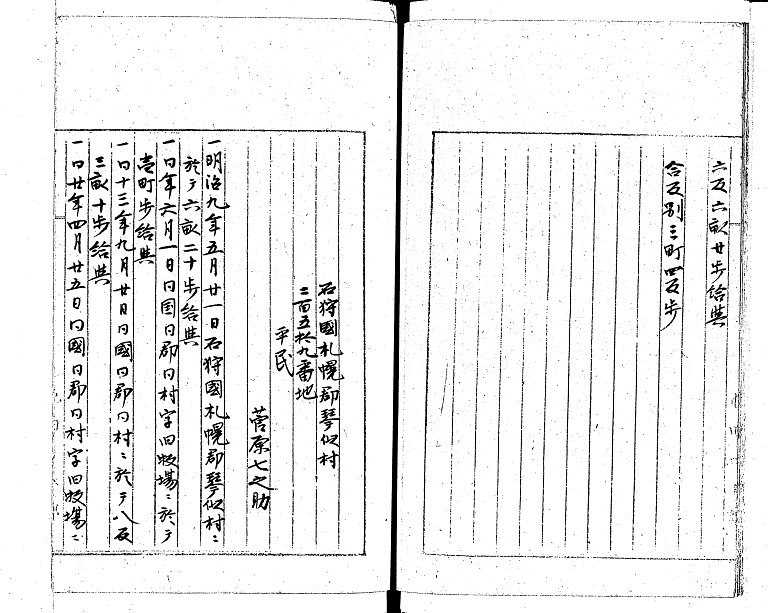 六反六畝廿歩給與
合反別三町四反歩
石狩國札幌郡琴似村
二百五拾九番地
平民
菅原七之助
一明治九年五月廿一日石狩國札幌郡琴似村ニ
於テ六畝二十歩給與
一口年六月一日口国口郡口村字旧牧場ニ於テ
壱町歩給與
一口十三年九月廿日口國口郡口村ニ於テ八反
三畝十歩給與
一口廿年四月廿五日口國口郡口村字旧牧場ニ